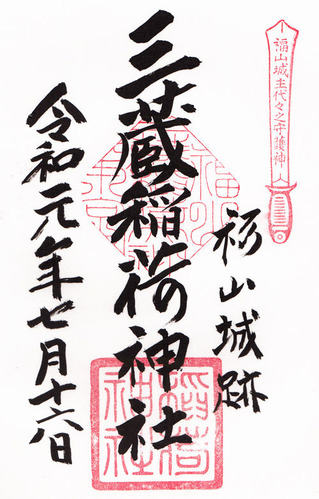 福山城主代々之守護神
福山城跡
三蔵稲荷神社
稲荷神社
令和元年七月十六日